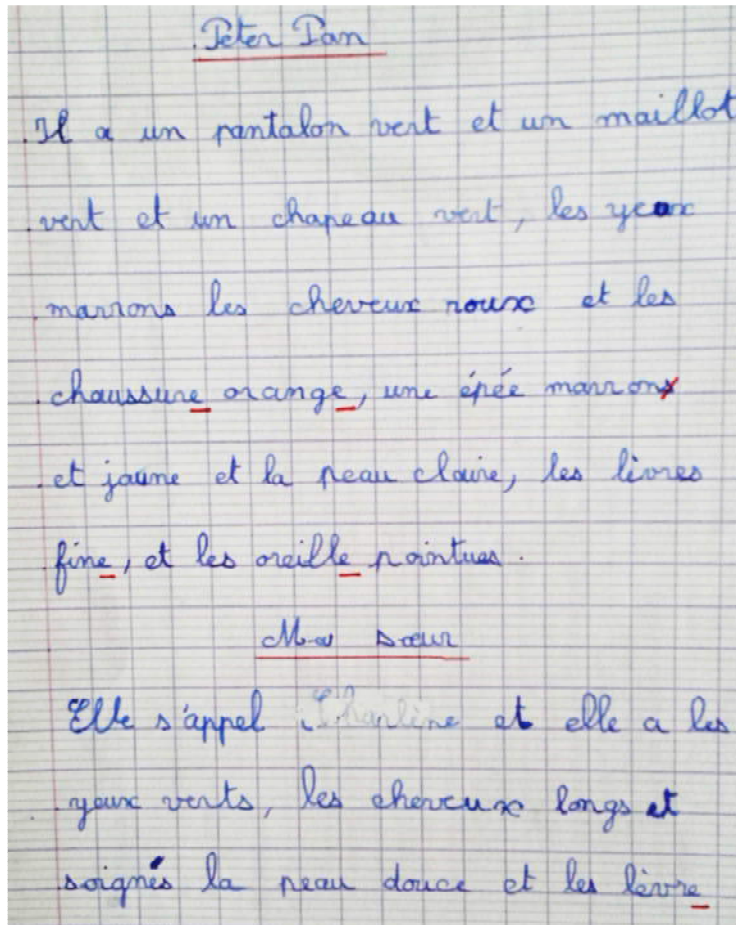 Peter Pan
Il a un pantalon vert et un maillot
vert et un chapeau vert, les yeux
marrons les cheveux roux et les
chaussure orange, une épée marrons
et jaune et la peau claire, les livres
fine, et les oreille pointues.
Ma sœur
Elle s'appel et elle a les
yeux verts, les cheveux longs et
soignés la peau douce et les lèvre